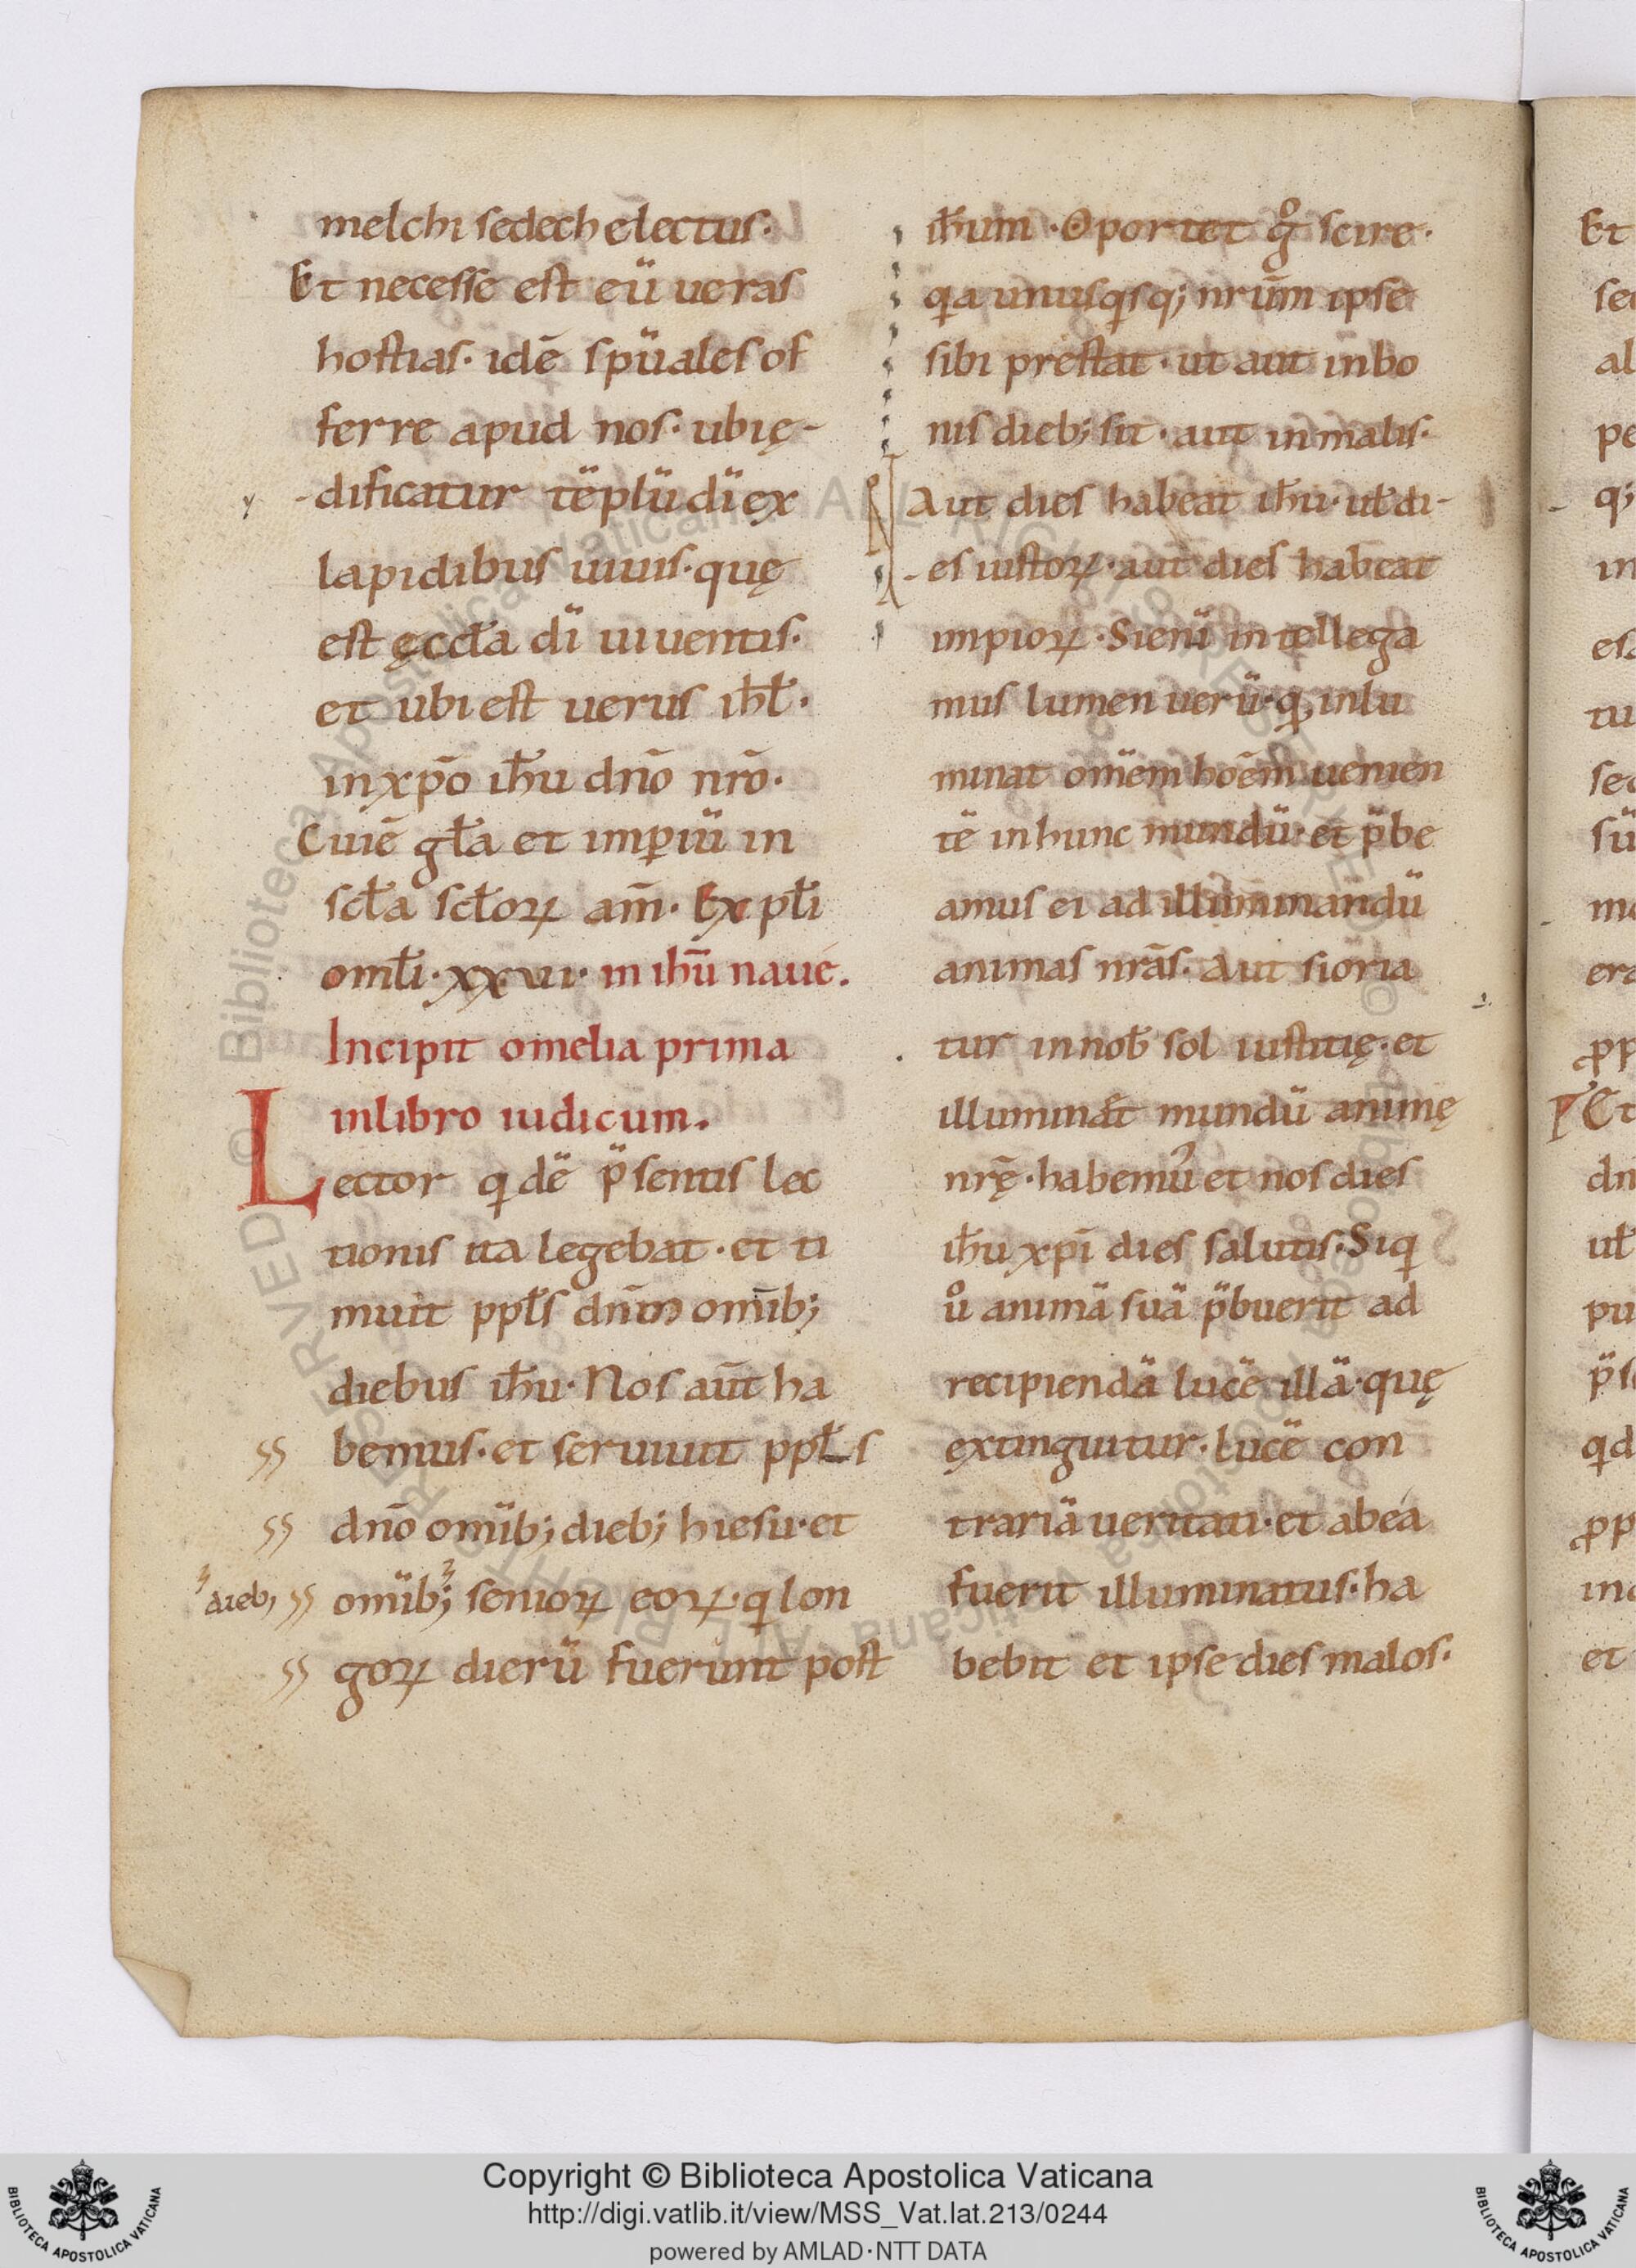 melchi sedech electus·
Et necesse est eū ueras
hostias· idē spūales of
ferre apud nos· ubi ę-
-dificatur tēplū dī ex
lapidibus uiuis· quę
est ęccl̄a dī uiuentis·
et ubi est uerus ihl̄·
in xp̄o ih̄u dn̄o nr̄o·
Cui ē gl̄a et imꝑiū in
scl̄a scl̄oꝝ am̄· Ex pl̄i
oml̄i· xxvi· in ih̄ū naue.
Incipit omelia prima
in libro iudicum.
Lector qdē p̄sentis lec
tionis ita legebat· et ti
muit ppl̄s dn̄m om̄ib;
diebus ih̄u· Nos aūt ha
bemus· et seruiuit ppl̄s
dn̄o om̄ib; dieb; hiesu· et
dieb; om̄ib; senioꝝ eoꝝ· q lon
goꝝ dierū fuerunt post
ih̄um· Oportet gͦ scire·
qa unusqsq; nr̄ūm ipse
sibi prestat· ut aut in bo
nis dieb; sit· aut in malis·
Aut dies habeat ih̄u· ul̄ di-
-es iustoꝝ· aut dies habeat
impioꝝ· Si enī intellega
mus lumen uerū· qđ inlu
minat om̄em hoēm uenien
tē in hunc mundū· et p̄be
amus ei ad illuminandū
animas nr̄as· Aut si oria
tur in nob̄ sol iustitię· et
illuminat mundū animę
nr̄ę· habemus et nos dies
ih̄u xp̄i dies salutis· Si q
uͦ animā suā p̄buerit ad
recipiendā lucē illā· quę
extinguitur· lucē con
trariā ueritati· et ab ea
fuerit illuminatus· ha
bebit et ipse dies malos·
Copyright © Biblioteca Apostolica Vaticana
http://digi.vatlib.it/view/MSS_Vat.lat.213/0244
powered by AMLAD·NTT DATA
BIBLIOTECA APOSTOLICA VATICANA
BIBLIOTECA APOSTOLICA VATICANA